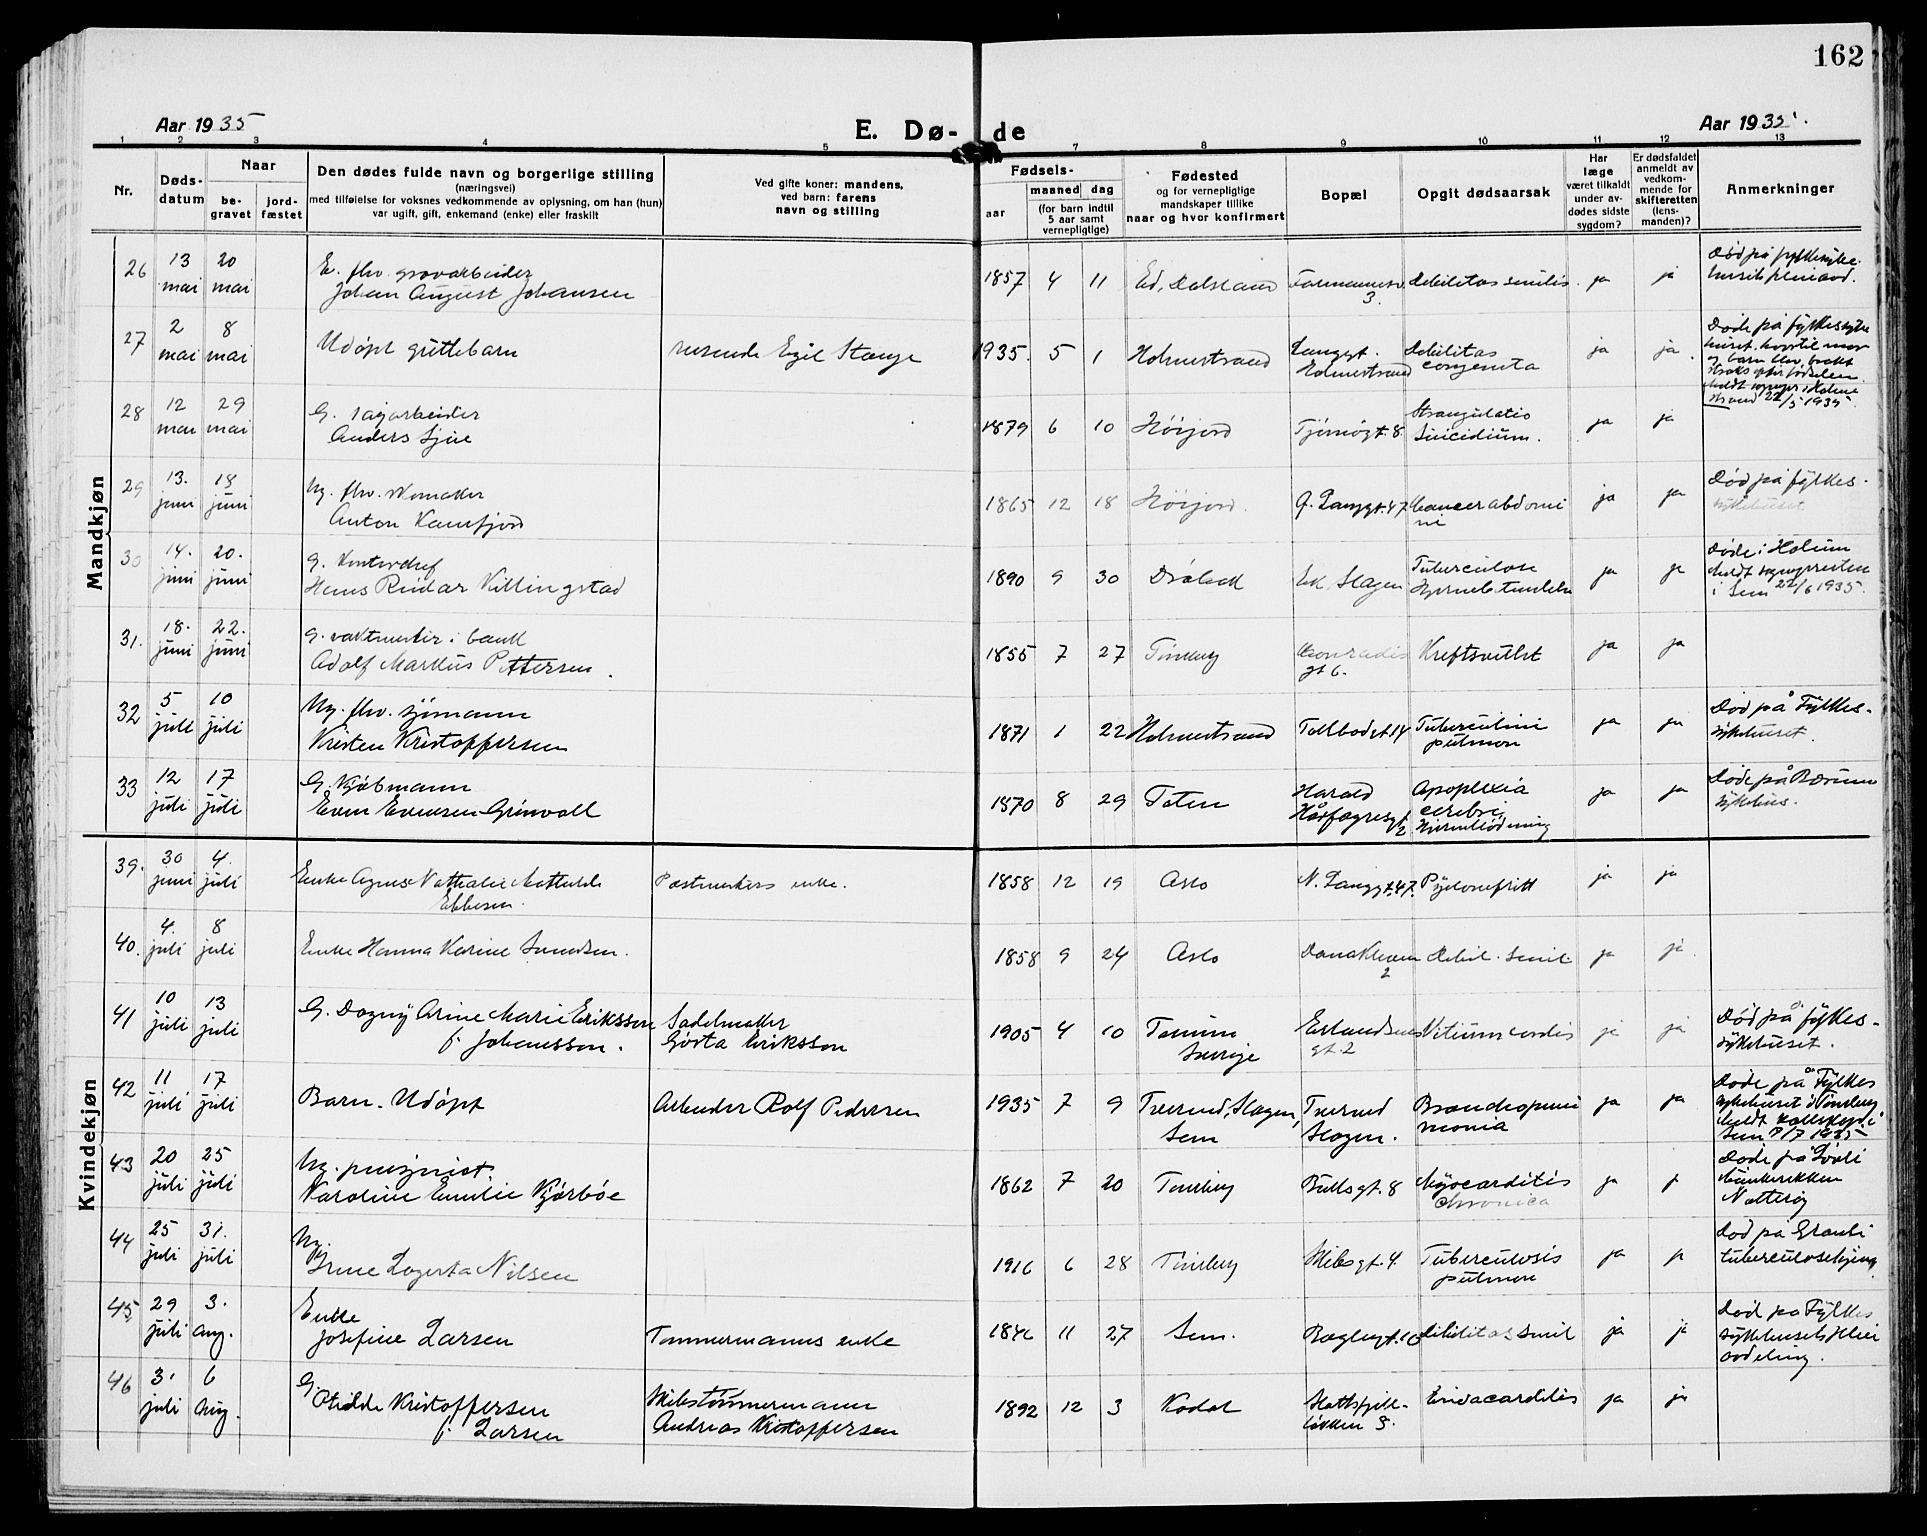 162
Aar 1935
E. Dø-de
Aar 1935.
1 2 3 4 5 7 8 9 10 11 12 13
Nr.
Døds-
datum
Naar
be-
gravet
jord-
fæstet
Den dødes fulde navn og borgerlige stilling
(næringsvei)
med tilføielse for voksnes vedkommende av oplysning, om han (hun)
var ugift, gift, enkemand (enke) eller fraskilt
Ved gifte koner: mandens,
ved barn: farens
navn og stilling
Fødsels-
aar
maaned dag
(for barn indtil
5 aar samt
vernepligtige)
Fødested
og for vernepligtige
mandskaper tillike
naar og hvor konfirmert
Bopæl
Opgit dødsaarsak
Har
læge
været tilkaldt
under av-
dødes sidste
sygdom?
Er dødsfaldet
anmeldt av
vedkom-
mende for
skifteretten
(lens-
manden)?
Anmerkninger
Mandkjøn
26 13 mai 20 mai E. fhv. gravarbeider
Johan August Johansen
1857 4 11 Ed, Dalsland 3. debilitas senilis. ja ja Død på fylkesyke-
27 2 mai 8 mai Udøpt guttebarn
reisende Egil Stange
1935. 5 1 Holmestrand Langgt.
Holmestrand
Debilitas
congenita
ja ja. Døde på fylkessyke
huset, hvortil mor
og barn blev brakt
straks efter fødselen.
strand 22/5 1935.
28 12 mai 29 mai G. sagarbeider
Anders Gjøe
1879 6 10 Høijord Tjømøgt. 8 Strangulatio
Suicidium.
ja ja
29 13. juni 18 juni Ug. fhv. skomaker
Anton Kamfjord
1865 12 18 Høijord. Ø. Langgt. 47 Cancer abdomi
ni
ja ja Død på fylkes-
sykehuset
30 14. juni 20. juni G. kontorchef
Hans Reidar Killingstad
1890 9 30 Drøbak Ek, Slagen Tuberculose
ja ja
i Sem 22/6 1935.
31. 18. juni 22. juni G. vaktmester i bank
Adolf Markus Pettersen.
1855 7 27 Tønsberg Conradis
gt 6.
Kreftsvulst ja ja
32 5 juli 10 juli Ug. fhv. sjømann
Kristen Kristoffersen
1871 1 22 Holmestrand Tollbodgt. 14 pulmon ja ja Død på Fylkes-
sykehuset.
33 12 juli 17 juli G. Kjøbmann
Even Evensen Grinvoll
1870 8 29 Toten Harald
Hårfagresgt 2
Apoplexia
cerebri,
Hjerneblødning
ja ja Døde på Bærum
sykehus.
Kvindekjøn
39. 30 juni 4. juli Enke Agnes Nathalie Mathilde
Ebbesen.
Postmesters enke.
1858 12 19 Oslo N. Langgt. 47. Pyelonefritt ja ja
40. 4. juli 8 juli Enke Hanna Karine Svendsen.
1858 9 24 Oslo 2 Debil. senil ja ja.
41 10 juli 13 juli G. Dagny Arine Marie Eriksson
f. Johansson.
Sadelmaker
Gösta Eriksson
1905 4 10 Tanum
Sverige
Erlandsens
gt. 2
Vitium cordis ja ja Død på fylkes-
sykehuset.
42 11 juli 17 juli Barn. Udøpt
Arbeider Rolf Pedersen
1935 7 9 Tverved, Slagen,
Sem
Tverved
Slagen.
Bronchopneu
monia
ja ja Døde på Fylkes
sykehuset i Tønsberg
43 20 juli 25 juli Ug. pensjonist
Karoline Emilie Kjørbøe
1862 7 20 Tønsberg Bullsgt. 8 Myocarditis
chronica
ja ja
Nøtterøy
44 25 juli 31. juli Ug.
Irene Lagerta Nilsen
1916 6 28 Tønsberg gt. 4. Tuberculosis
pulmon
ja ja Død på Granli
tuberculosehjem
45 29 juli 3. aug. Enke
Josefine Larsen
Tømmermanns enke
1846 11 27 Sem. Baglergt. 10 debilitas senil ja ja Død på Fylkes
sykehusets pleie
avdeling.
46 31 juli 6 aug. G.
Otilde Kristoffersen
f. Larsen
Skibstømmermann
Andreas Kristoffersen
1892 12 3 Kodal Slottsfjell-
løkken 8. Endocarditis ja ja